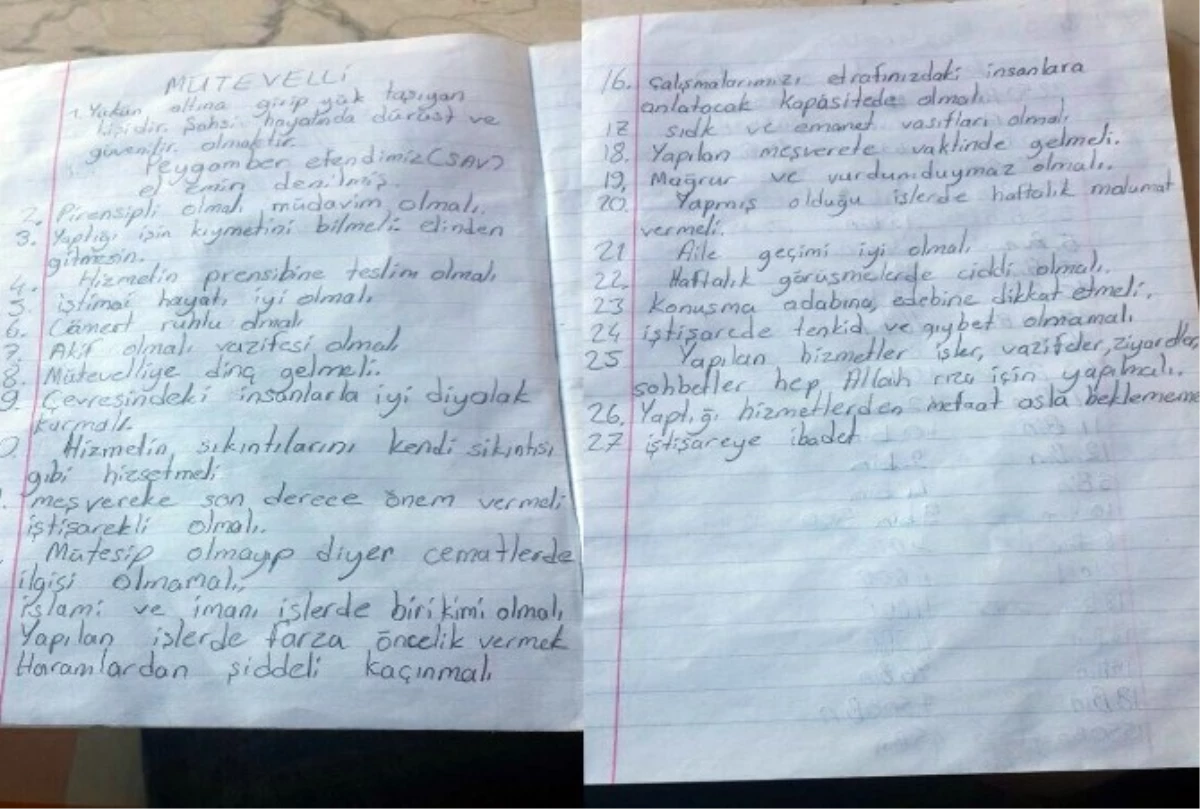 MÜTEVELLİ
1. Yükün altına girip yük taşıyan
kişidir. Şahsi hayatında dürüst ve
güvenilir olmaktır.
Peygamber efendimiz (SAV)
el emin denilmiş.
2. Pirensipli olmalı müdavim olmalı.
3. Yaptığı işin kıymetini bilmeli elinden
gitmesin.
4. Hizmetin prensibine teslim olmalı
5. iştimai hayatı iyi olmalı
6. Cömert ruhlu olmalı
7. Aktif olmalı vazifesi olmalı
8. Mütevelliye dinç gelmeli.
9. Çevresindeki insanlarla iyi diyalak
kurmalı.
0. Hizmetin sıkıntılarını kendi sıkıntısı
gibi hizsetmeli
meşvereke son derece önem vermeli
iştişarekli olmalı.
Mütesip olmayıp diyer cematlerde
ilgisi olmamalı,
islami ve imanı işlerde birikimi olmalı
Yapılan işlerde farza öncelik vermek
Haramlardan şiddeli kaçınmalı
16. Çalışmalarımızı etrafınızdaki insanlara
anlatacak kapasitede olmalı.
17 sıdk ve emanet vasıfları olmalı
18. Yapılan meşverete vaktinde gelmeli.
19. Mağrur ve vurdumduymaz olmalı.
20. Yapmış olduğu işlerde haftalık malumat
vermeli.
21 Aile geçimi iyi olmalı
22. Haftalık görüşmelerde ciddi olmalı.
23 Konuşma adabına, edebine dikkat etmeli.
24 iştişarede tenkid ve gıybet olmamalı
25 Yapılan hizmetler işler, vazifeler, ziyaretler,
sohbetler hep Allah rıza için yapılmalı.
26. Yaptığı hizmetlerden mefaat asla beklememe
27 iştişareye ibadet